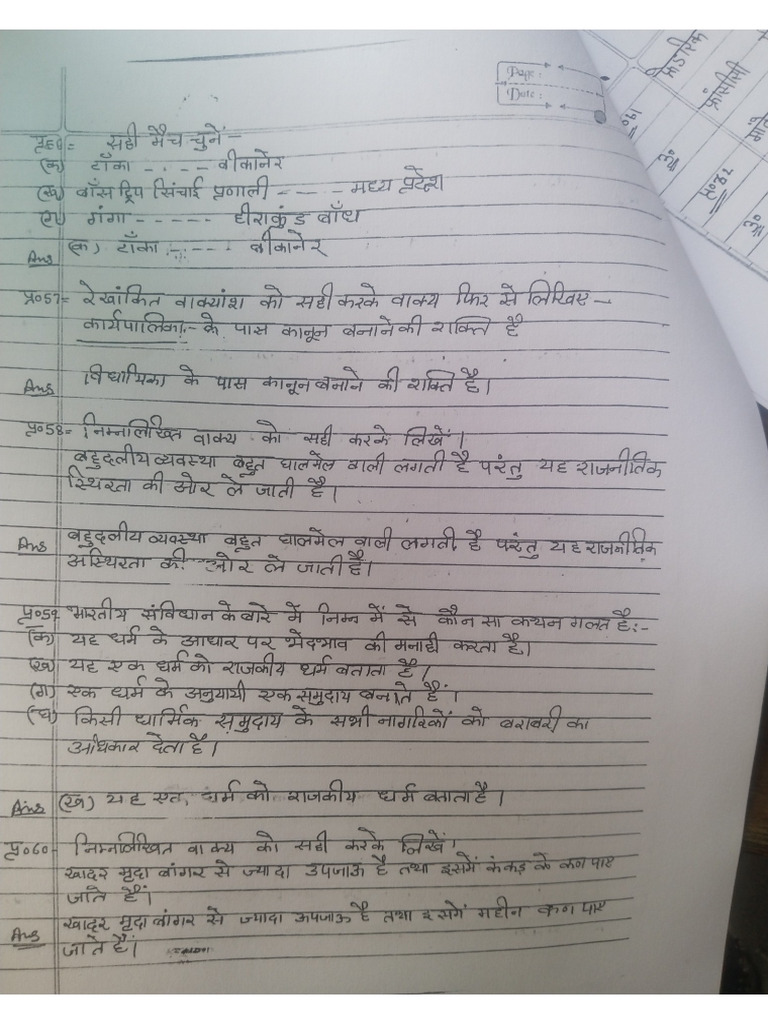 Page:
Date:
सही मैच चुनें -
(क) टाँका ----- बीकानेर
(ख) बाँस ड्रिप सिंचाई प्रणाली ----- मध्य प्रदेश
(ग) गंगा ----- हीराकुंड बाँध
Ans (क) टाँका ----- बीकानेर
प्र०57= रेखांकित वाक्यांश को सही करके वाक्य फिर से लिखिए -
कार्यपालिका:- के पास कानून बनाने की शक्ति है
Ans विधायिका के पास कानून बनाने की शक्ति है।
प्र०58= निम्नलिखित वाक्य को सही करके लिखें।
बहुदलीय व्यवस्था बहुत घालमेल वाली लगती है परंतु यह राजनीतिक
स्थिरता की ओर ले जाती है।
Ans बहुदलीय व्यवस्था बहुत घालमेल वाली लगती है परंतु यह राजनीतिक
अस्थिरता की ओर ले जाती है।
प्र०59 भारतीय संविधान के बारे में निम्न में से कौन सा कथन गलत है:-
(क) यह धर्म के आधार पर भेदभाव की मनाही करता है।
(ख) यह एक धर्म को राजकीय धर्म बताता है।
(ग) एक धर्म के अनुयायी एक समुदाय बनाते हैं।
(घ) किसी धार्मिक समुदाय के सभी नागरिकों को बराबरी का
अधिकार देता है।
Ans (ख) यह एक धर्म को राजकीय धर्म बताता है।
प्र०60- निम्नलिखित वाक्य को सही करके लिखें।
खादर मृदा बांगर से ज्यादा उपजाऊ है तथा इसमें कंकड़ के कण पाए
जाते हैं।
Ans खादर मृदा बांगर से ज्यादा ऊपजाऊ है तथा इसमें महीन कण पाए
जाते हैं।
फ्रेडरिक
फ्रांसीसी
प्र०४२
उ०
उ०